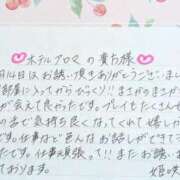 ホテルアロマの貴方様
月14日はお誘い頂きありがとうございまし
部屋に入ってからびっくり!!まさかのまさか
が会えて良かったです。プレイもたくさん
る で気持ち良くなってくれて嬉しかった
です。仕事など色んなお話しができて
たです。仕事頑張って!!またお誘い
ております。 姫咲